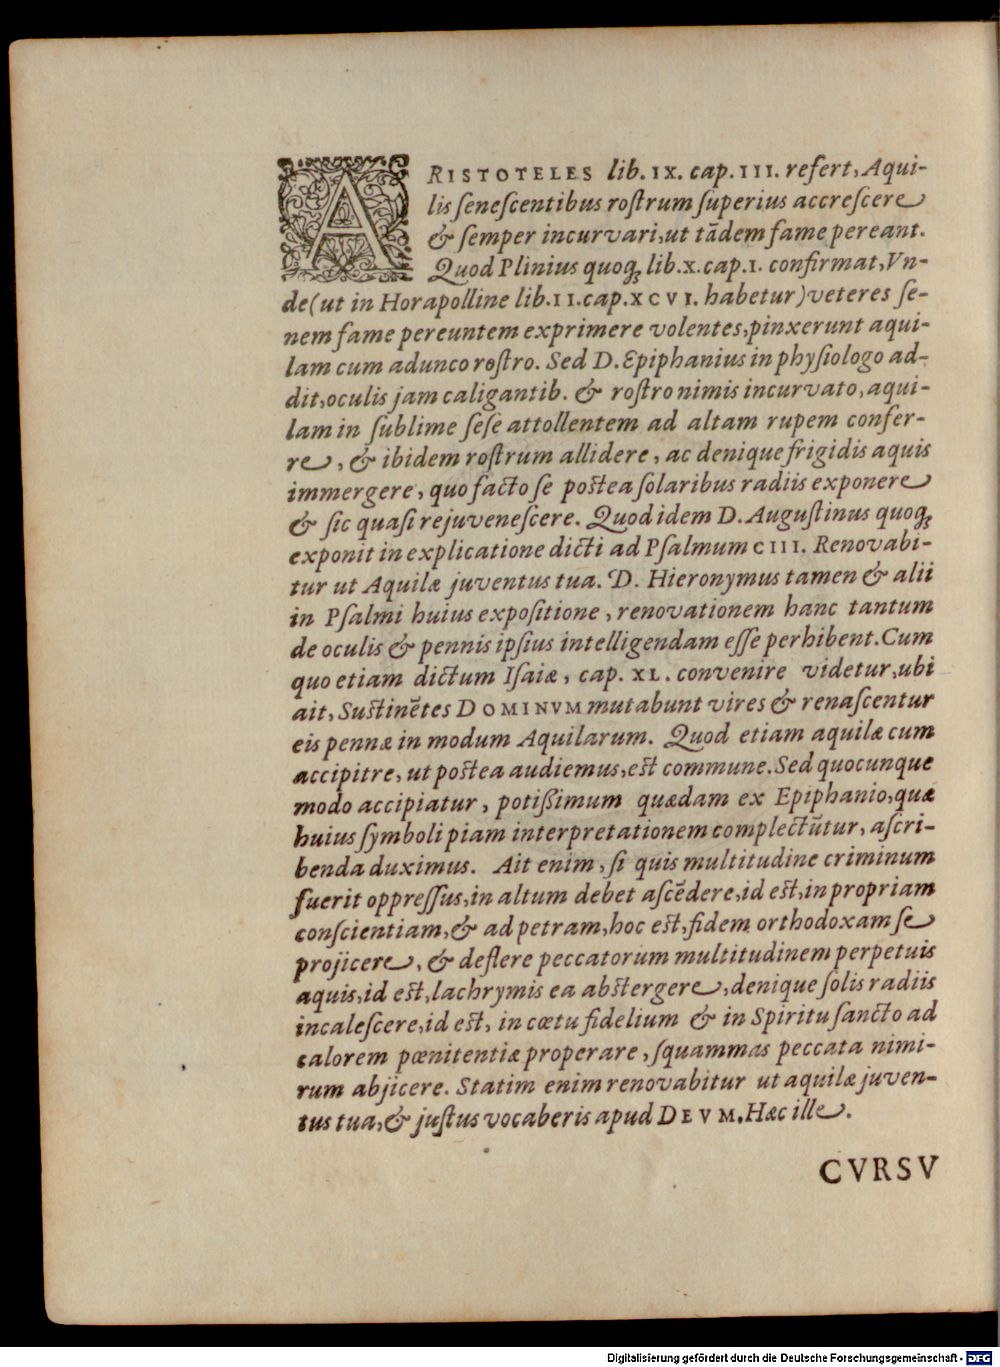 ARISTOTELES lib. IX. cap. III. refert, Aqui-
lis ſeneſcentibus roſtrum ſuperius accreſcere
& ſemper incurvari, ut tādem fame pereant.
Quod Plinius quoq; lib. X. cap. I. confirmat, Vn-
de (ut in Horapolline lib. II. cap. XCVI. habetur) veteres ſe-
nem fame pereuntem exprimere volentes, pinxerunt aqui-
lam cum adunco roſtro. Sed D. Epiphanius in phyſiologo ad-
dit, oculis jam caligantib. & roſtro nimis incurvato, aqui-
lam in ſublime ſeſe attollentem ad altam rupem confer-
re, & ibidem roſtrum allidere, ac denique frigidis aquis
immergere, quo facto ſe poſtea ſolaribus radiis exponere
& ſic quaſi rejuveneſcere. Quod idem D. Auguſtinus quoq;
exponit in explicatione dicti ad Pſalmum CIII. Renovabi-
tur ut Aquilæ juventus tua. D. Hieronymus tamen & alii
in Pſalmi huius expoſitione, renovationem hanc tantum
de oculis & pennis ipſius intelligendam eſſe perhibent. Cum
quo etiam dictum Iſaiæ, cap. XL. convenire videtur, ubi
ait, Suſtinētes DOMINVM mutabunt vires & renaſcentur
eis pennæ in modum Aquilarum. Quod etiam aquilæ cum
accipitre, ut poſtea audiemus, eſt commune. Sed quocunque
modo accipiatur, potiſſimum quædam ex Epiphanio, quæ
huius ſymboli piam interpretationem complectūtur, aſcri-
benda duximus. Ait enim, ſi quis multitudine criminum
fuerit oppreſſus, in altum debet aſcēdere, id eſt, in propriam
conſcientiam, & ad petram, hoc eſt, fidem orthodoxam ſe
projicere, & deflere peccatorum multitudinem perpetuis
aquis, id eſt, lachrymis ea abſtergere, denique ſolis radiis
incaleſcere, id eſt, in cœtu fidelium & in Spiritu ſancto ad
calorem pœnitentiæ properare, ſquammas peccata nimi-
rum abjicere. Statim enim renovabitur ut aquilæ juven-
tus tua, & juſtus vocaberis apud DEVM. Hæc ille.
CVRSV
Digitalisierung gefördert durch die Deutsche Forschungsgemeinschaft - DFG